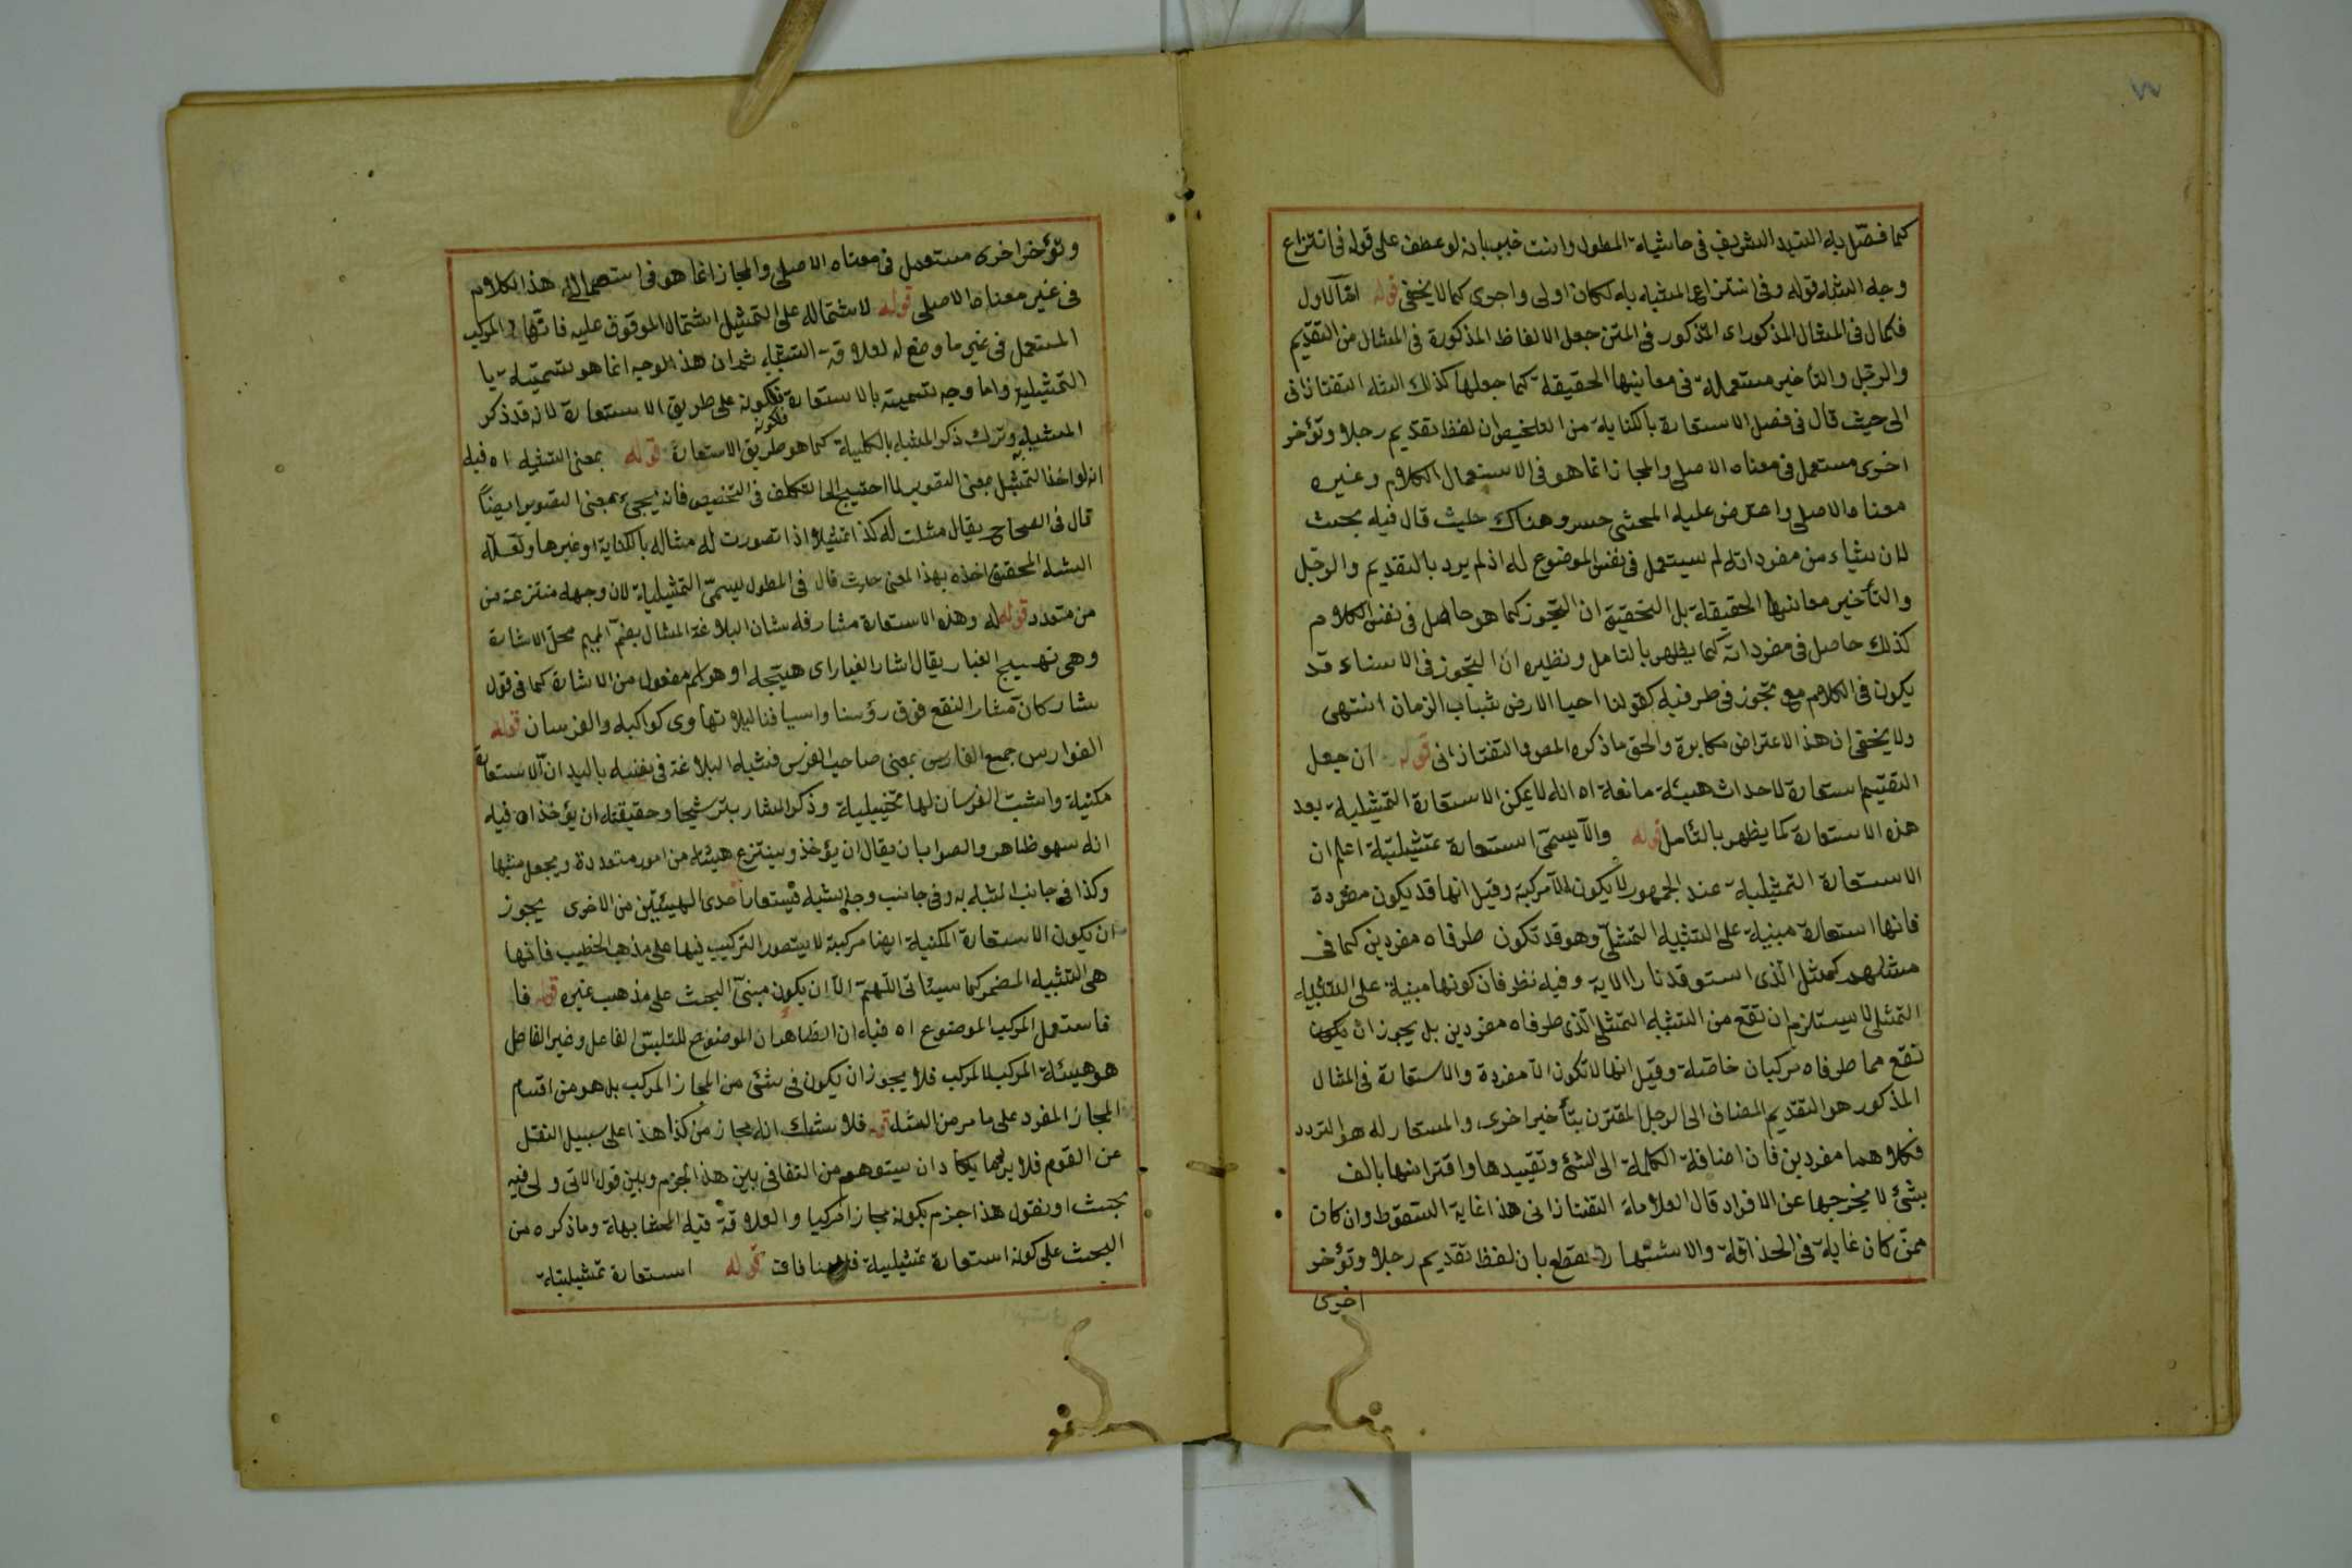 كما فصّل به السيد الشريف في حاشية المطول وانت خبير بانه لو عطف على قوله في انتزاع
وجه الشبه قوله وفي انتزاع المشبه به لكان اولى واحرى كما لا يخفى قوله امّا الاول
فكمال في المثال المذكور اى المذكور في المتن جعل الالفاظ المذكورة في المثال من التقديم
والرجل والتأخير مستعملة في معانيها الحقيقة كما جعلها كذلك التفتازانى
الى حيث قال في فصل الاستعارة بالكناية من التلخيص ان لفظ تقديم رجلا وتؤخر
اخرى مستعمل في معناه الاصلى والمجاز انما هو في الاستعمال الكلام وغيره
معناه الاصلى واعترض عليه المحشى خسرو هناك حيث قال فيه بحث
لان شياء من مفرداته لم يستعمل في نفس الموضوع له اذ لم يرد بالتقديم والرجل
والتأخير معانيها الحقيقة بل التحقيق ان التجوز كما هو حاصل في نفس الكلام
كذلك حاصل في مفرداته كما يظهر بالتامل ونظيره ان التجوز في الاسناد قد
يكون في الكلام مع تجوز في طرفيه كقولنا احيا الارض شباب الزمان انتهى
ولا يخفى ان هذا الاعتراض مكابرة والحق ما ذكره المص والتفتازانى قوله ان جعل
التقديم استعارة لاحداث هيئة مانعة اه انه لا يمكن الاستعارة التمثيلية بعد
هذه الاستعارة كما يظهر بالتأمل قوله والآ يسمّى استعارة تمثيليّة اعلم ان
الاستعارة التمثيلية عند الجمهور لا يكون الآ مركبة وقيل انها قد يكون مفردة
فانها استعارة مبنية على التشبيه التمثيلى وهو قد تكون طرفاه مفردين كما في
مثلهم كمثل الّذى استوقد نارا الاية وفيه نظر فان كونها مبنية على التشبيه
التمثلى لا يستلزم ان تقع من التشبيه التمثلى الّذى طرفاه مفردين بل يجوز ان يكون
تقع مما طرفاه مركبان خاصة وقيل انها لا تكون الآ مفردة والاستعارة في المثال
المذكور هو التقديم المضاف الى الرجل المقترن بتأخير اخرى والمستعار له هو التردد
فكلاهما مفردين فان اضافة الكلمة الى الشئ وتقييدها واقترانها بالف
بشئ لا يخرجها عن الافراد قال العلامة التفتازانى هذا غاية السقوط وان كان
ممّن كان غاية في الحذاقة والاشتهار لقطع بان لفظ تقديم رجلا وتؤخر
اخرى
وتؤخر اخرى مستعمل في معناه الاصلى والمجاز انما هو في استعمال هذا الكلام
في غير معناه الاصلى قوله لاشتماله على التمثيل اشتمال الموقوف عليه فانها المركب
المستعمل في غير ما وضع له لعلاقة التشبيه ثم ان هذا الوجه انما هو تسميته با
التمثيلية واما وجه تسميته بالاستعارة فلكونه على طريق الاستعارة لانه قد ذكر
فلكونه
المشبه به وترك ذكر المشبه بالكلية كما هو طريق الاستعارة قوله بمعنى التشبيه اه فيه
انه لو اخذ التمثيل بمعنى التصوير لما احتيج الى التكلف في التخصيص فانه يجئ بمعنى التصوير ايضاً
قال في الصحاح يقال مثلت له كذا تمثيلا اذا تصورت له مثاله بالكناية او غيرها ولعله
المحقق اخذه بهذا المعنى حيث قال في المطول ليسمّى التمثيلية لان وجهه منتزعة من
من متعدد قوله له وهذه الاستعارة مثار فرسان البلاغة المثار بضم الميم محل الاشارة
وهى تهييج الغبار يقال اثار الغبار اى هيّجه او هو اسم مفعول من الاشارة كما في قول
بشار كان مثار النقع فوق رؤسنا واسيافنا ليلا تهاوى كواكبه والفرسان قوله
الفوارس جمع الفارس بمعنى صاحب الفرس فشبه البلاغة في نفسه بالميدان الاستعارة
مكنية واثبت الفرسان لها تخييلية وذكر المثار ترشيحا وحقيقته ان يؤخذ اه فيه
انه سهو ظاهر والصواب ان يقال ان يؤخذ وينتزع هيئة من امور متعددة ويجعل مشبها
وكذا في جانب المشبه به وفي جانب وجه الشبه فيستعار احدى الهيئتين من الاخرى يجوز
ان يكون الاستعارة المكنية ايضا مركبة لا يتصور التركيب فيها على مذهب الخطيب فانها
هى التشبيه المضمر كما سيئاتى اللّهمّ الآ ان يكون مبنى البحث على مذهب غيره قوله فا
فاستعمل المركب الموضوع اه فيه ان الظاهر ان الموضوع للتلبس الفاعل وغير الفاعل
هو هيئة المركب لا المركب فلا يجوز ان يكون في شئ من المجاز المركب بل هو من اقسام
المجاز المفرد على ما مر من قوله فلا شك انه مجاز من كذا هذا على سبيل النقل
عن القوم فلا يرد ما يكاد ان يتوهم من التفافى بين هذا الجزم وبين قول الآتى ولى فيه
بحث او نقول هذا جزم بكونه مجازا مركبا والعلاقة فيه المشابهة وما ذكره من
البحث على كونه استعارة تمثيلية فلا منافات قوله استعارة تمثيليّة